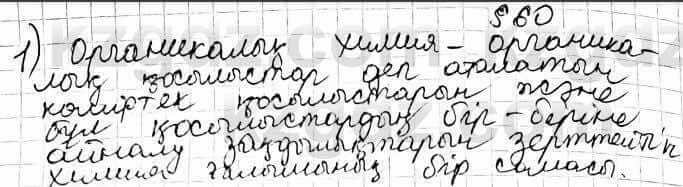 § 60
1) Органикалық химия - органика-
лық қосылыстар деп аталатын
көміртек қосылыстарын және
бұл қосылыстардың бір-беріне
айналу заңдылықтарын зерттейтін
химия ғылымының бір саласы.